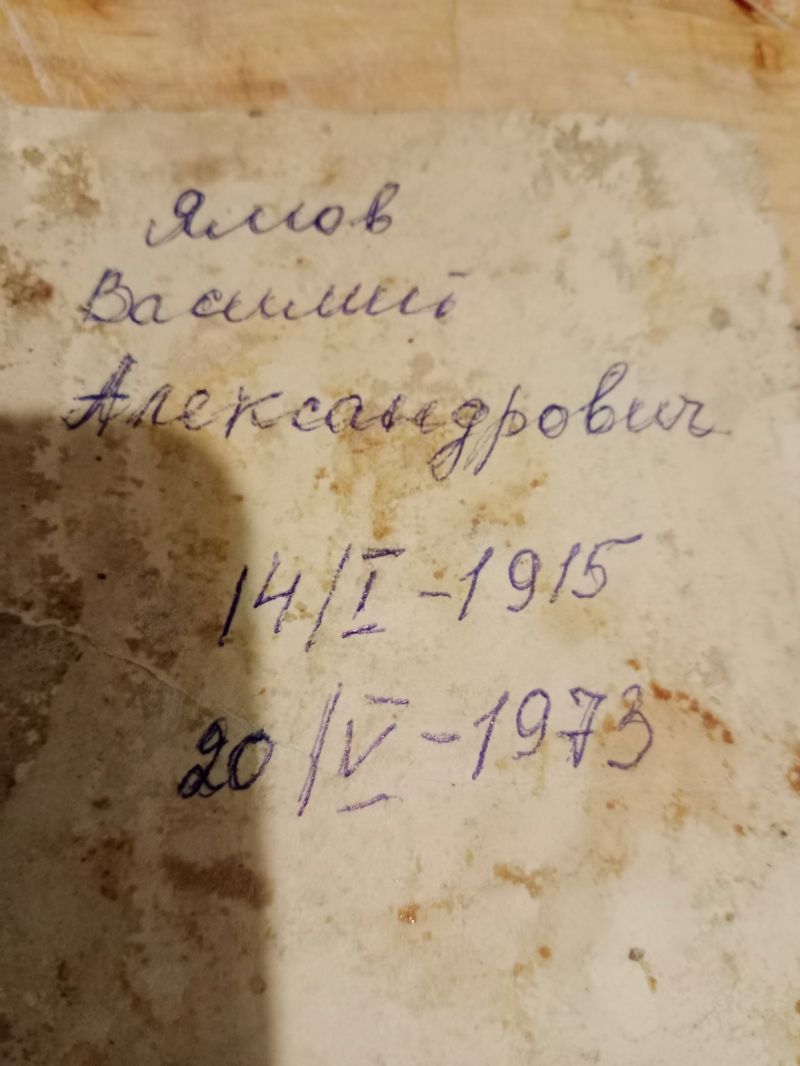 Ямов
Василий
Александрович
14/I-1915
20/V-1973